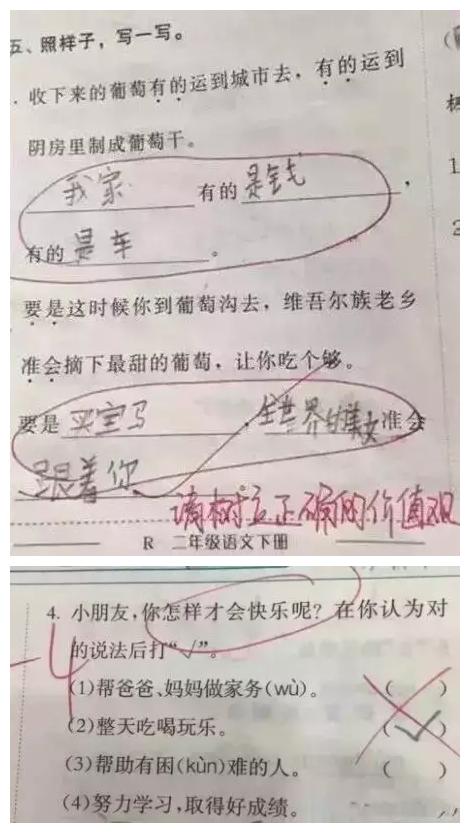 五、照样子，写一写。
收下来的葡萄有的运到城市去，有的运到
阴房里制成葡萄干。
我家有的是钱，
有的是车。
要是这时候你到葡萄沟去，维吾尔族老乡
准会摘下最甜的葡萄，让你吃个够。
要是买宝马，全世界的美女准会
跟着你
请树立正确的价值观
R 二年级语文下册
4. 小朋友，你怎样才会快乐呢？在你认为对
的说法后打“√”。
-4
(1)帮爸爸、妈妈做家务(wù)。（ ）
(2)整天吃喝玩乐。（√）
(3)帮助有困(kùn)难的人。（ ）
(4)努力学习,取得好成绩。